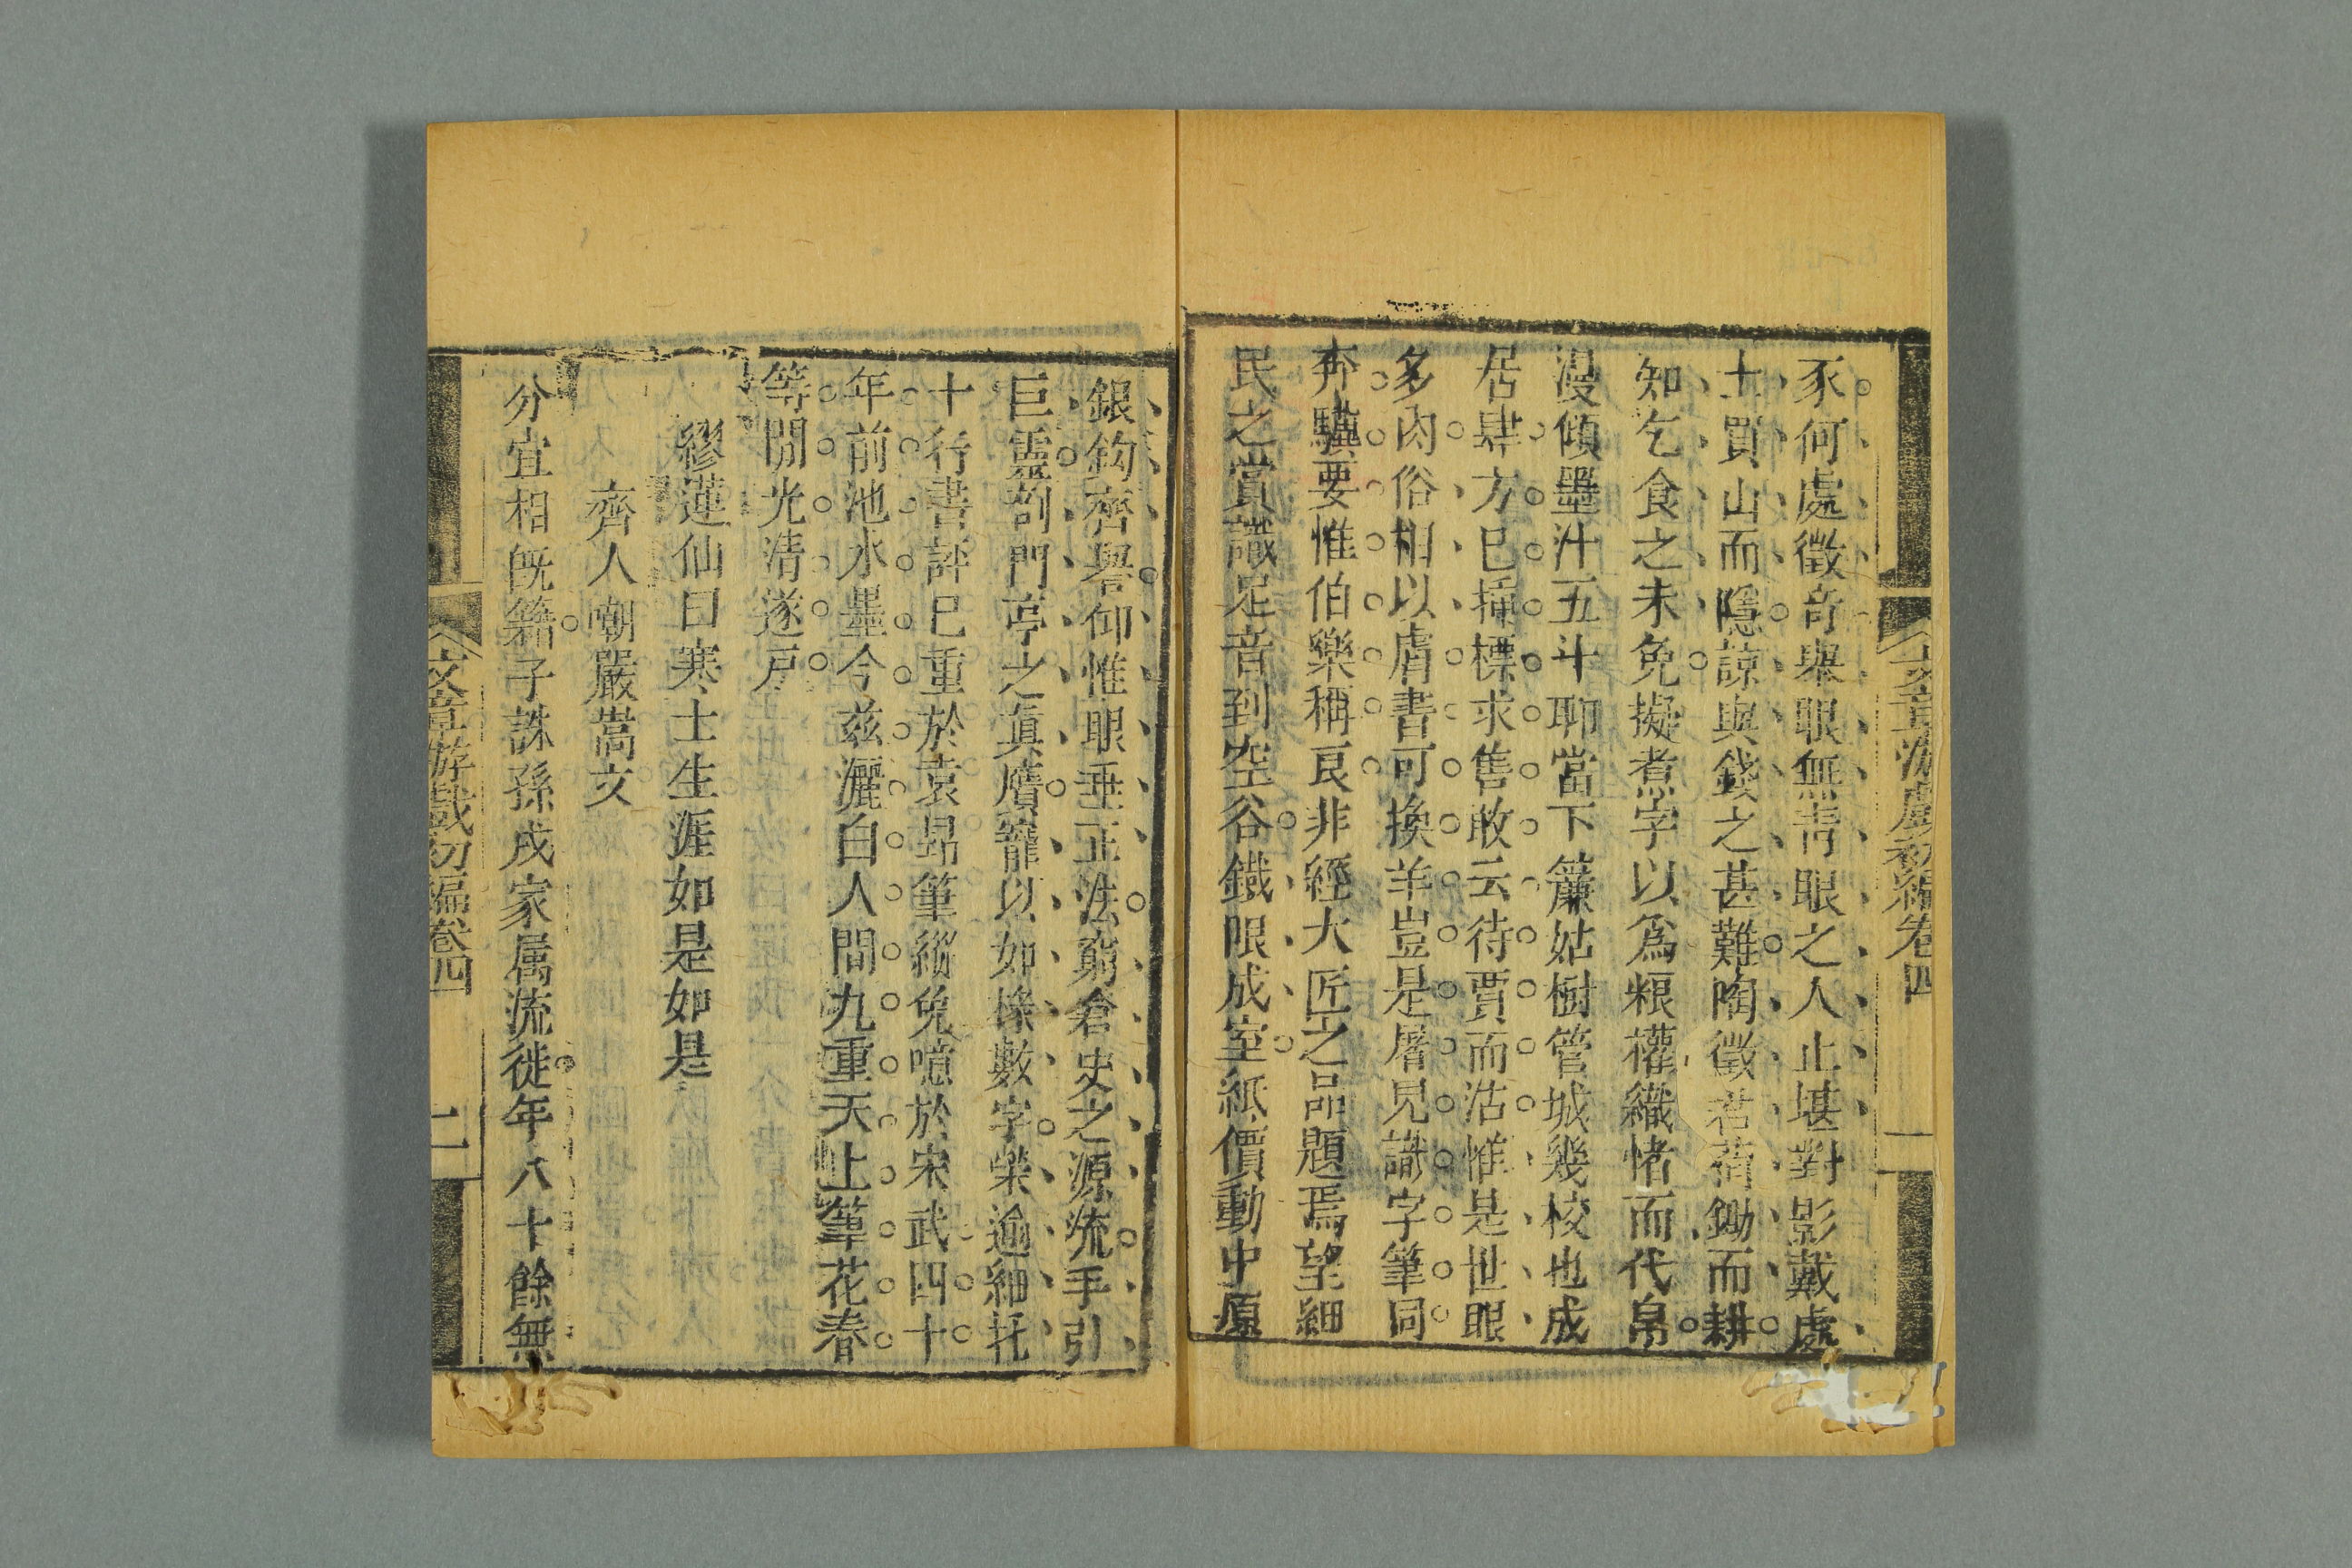 文章游戲初編卷四
豕何處徵奇舉眼無青眼之人止堪對影戴處
士買山而隱諒與錢之甚難陶徵君荷鋤而耕
知乞食之未免擬煮字以爲粮權織楮而代帛
漫傾墨汁五斗聊當下簾姑樹管城幾校也成
居肆方已插標求售敢云待賈而沽惟是世眼
多肉俗相以膚書可換羊豈是屠兒識字筆同
奔驥要惟伯樂稱良非經大匠之品題焉望細
民之賞識足音到空谷鐵限成室紙價動中原
銀鈎齊譽仰惟眼垂正法窮倉史之源流手引
巨靈剖門亭之真贋寵以如椽數字榮逾細托
十行書評已重於袁昻筆縱免噫於宋武四十
年前池水墨今茲灑白人間九重天上筆花春
等閒光清遂戸
繆蓮仙曰寒士生涯如是如是
齊人嘲嚴嵩文
分宜相旣籍子誅孫戍家属流徙年八十餘無
文章游戲初編卷四
二